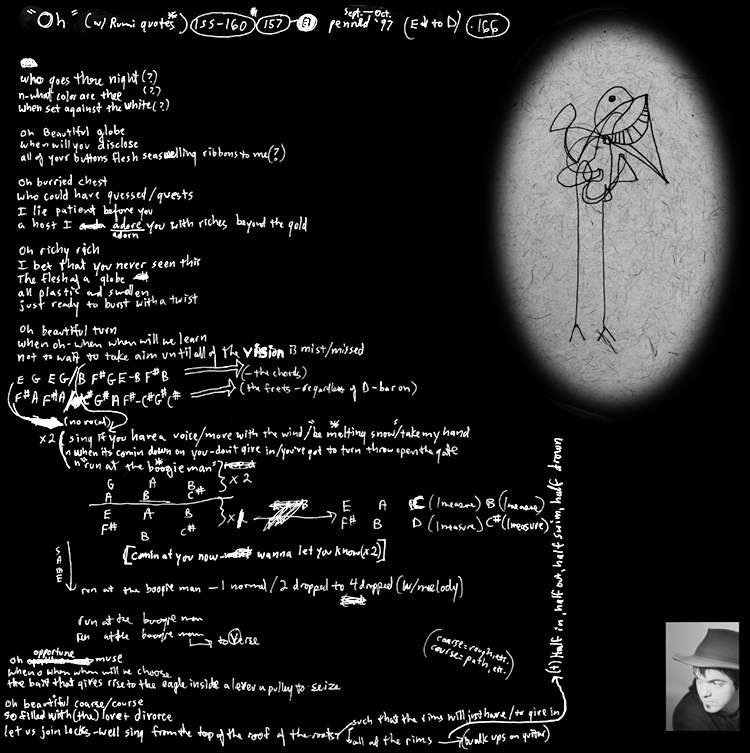 "Oh" (w/ Rumi quotes*) 155-160 *157 - penned Sept.-Oct. '97 (E♭ to D) .166
who goes there night (?)
n-what color are thee (?)
when set against the white (?)
oh Beautiful globe
when will you disclose
all of your buttons flesh seaswelling ribbons to me (?)
oh burried chest
who could have guessed/quests
I lie patient before you
a host I adore you with riches beyond the gold
adorn
oh richy rich
I bet that you never seen this
The flesh of a globe
all plastic and swollen
just ready to burst with a twist
oh beautiful turn
when oh-when when will we learn
not to wait to take aim until all of the vision is mist/missed
E G E G/B F# G E-B F# B (-the chords)
F# A F# A / C# G# A F#-C# G# C# (the frets-regardless of D-bar on)
(no vocal)
x2 (sing if you have a voice/more with the wind/"be *melting snow"/take my hand
n when its comin down on you-don't give in/you've got to turn throw open the gate
n "run at the *boogie man"
x2
G A B
A B C#
E A B
F# B C#
x
E A C (1measure) B (1measure)
F# B D (1measure) C# (1measure)
[comin at you now- wanna let you know (x2)]
SAME
run at the boogie man - 1 normal / 2 dropped to 4 dropped (w/melody)
run at the boogie man
run at the boogie man
to Verse
(coarse=rough, etc.
course=path, etc.)
oh opportune muse
when o when when will we choose
the bait that gives rise to the eagle inside a lever a pulley to seize
oh beautiful coarse/course
so filled with (tha) lover divorce
let us join locks-well sing from the top of the roof of the roots
such that the rims will just have / to give in
all of the rims
(walk ups on guitar)
(†) half in, half out, half swim, half drown